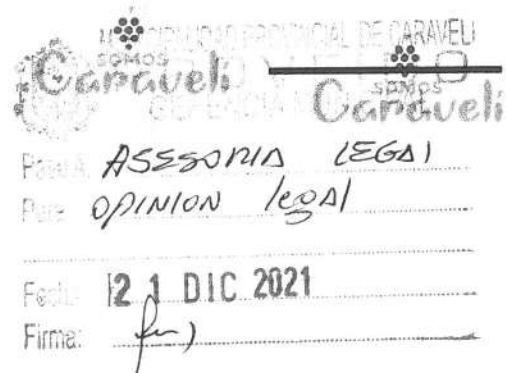 MUNICIPALIDAD PROVINCIAL DE CARAVELI
SOMOS
Caraveli
SOMOS
Caraveli
GERENCIA
Pase A: ASESORIA LEGAL
Para: OPINION legal
Fecha: 21 DIC 2021
Firma: